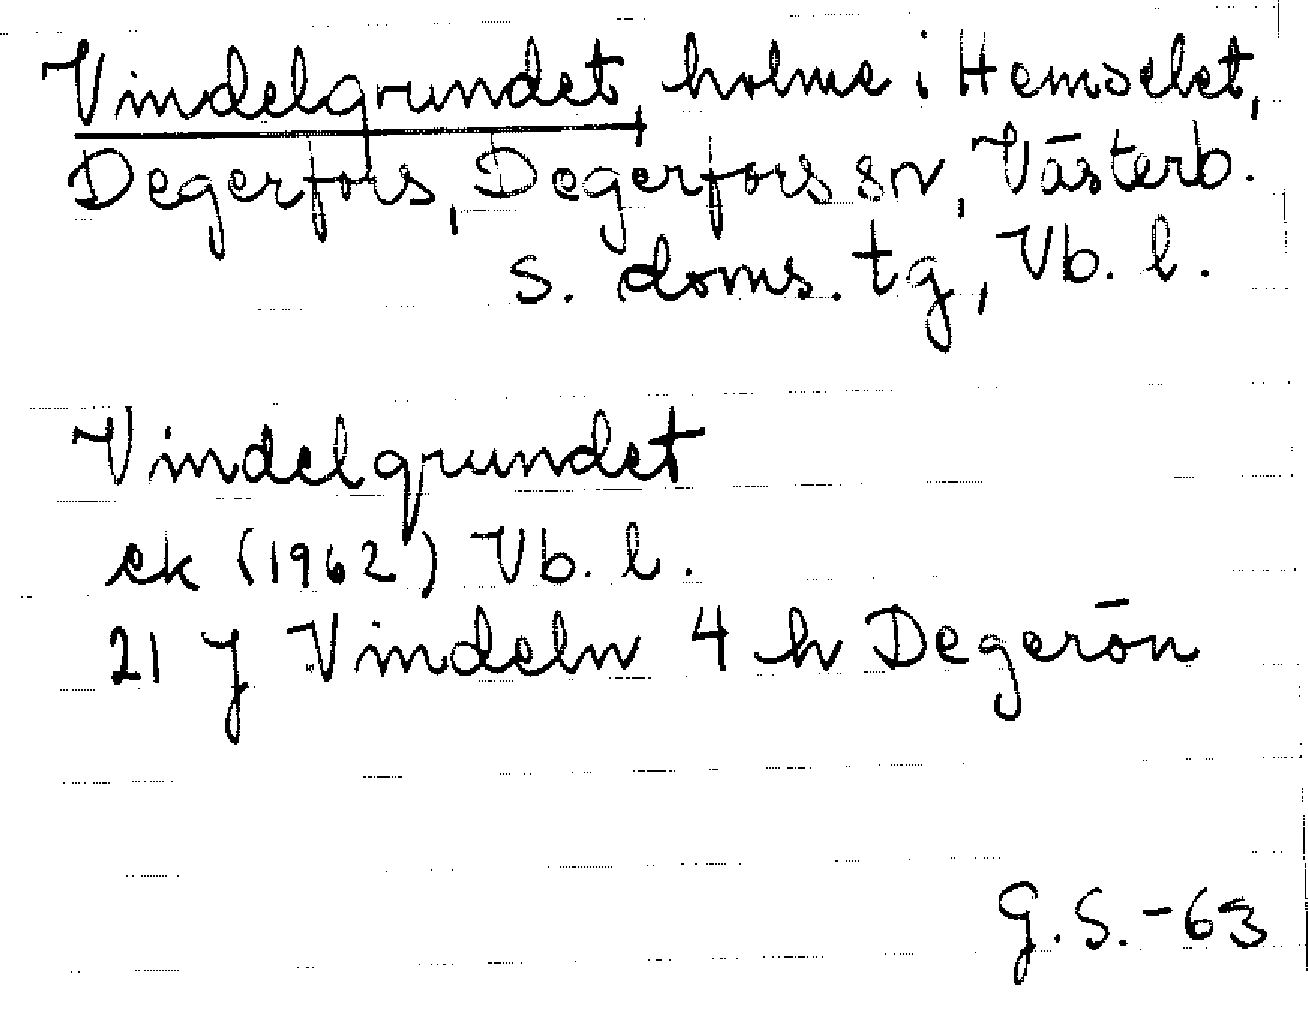 Vindelgrundet, holme i Hemselet,
Degerfors, Degerfors sn, Västerb.
s. doms. tg, Vb. l.
Vindelgrundet
ek (1962) Vb. l.
21 J Vindeln 4 h Degerön
G.S.-63